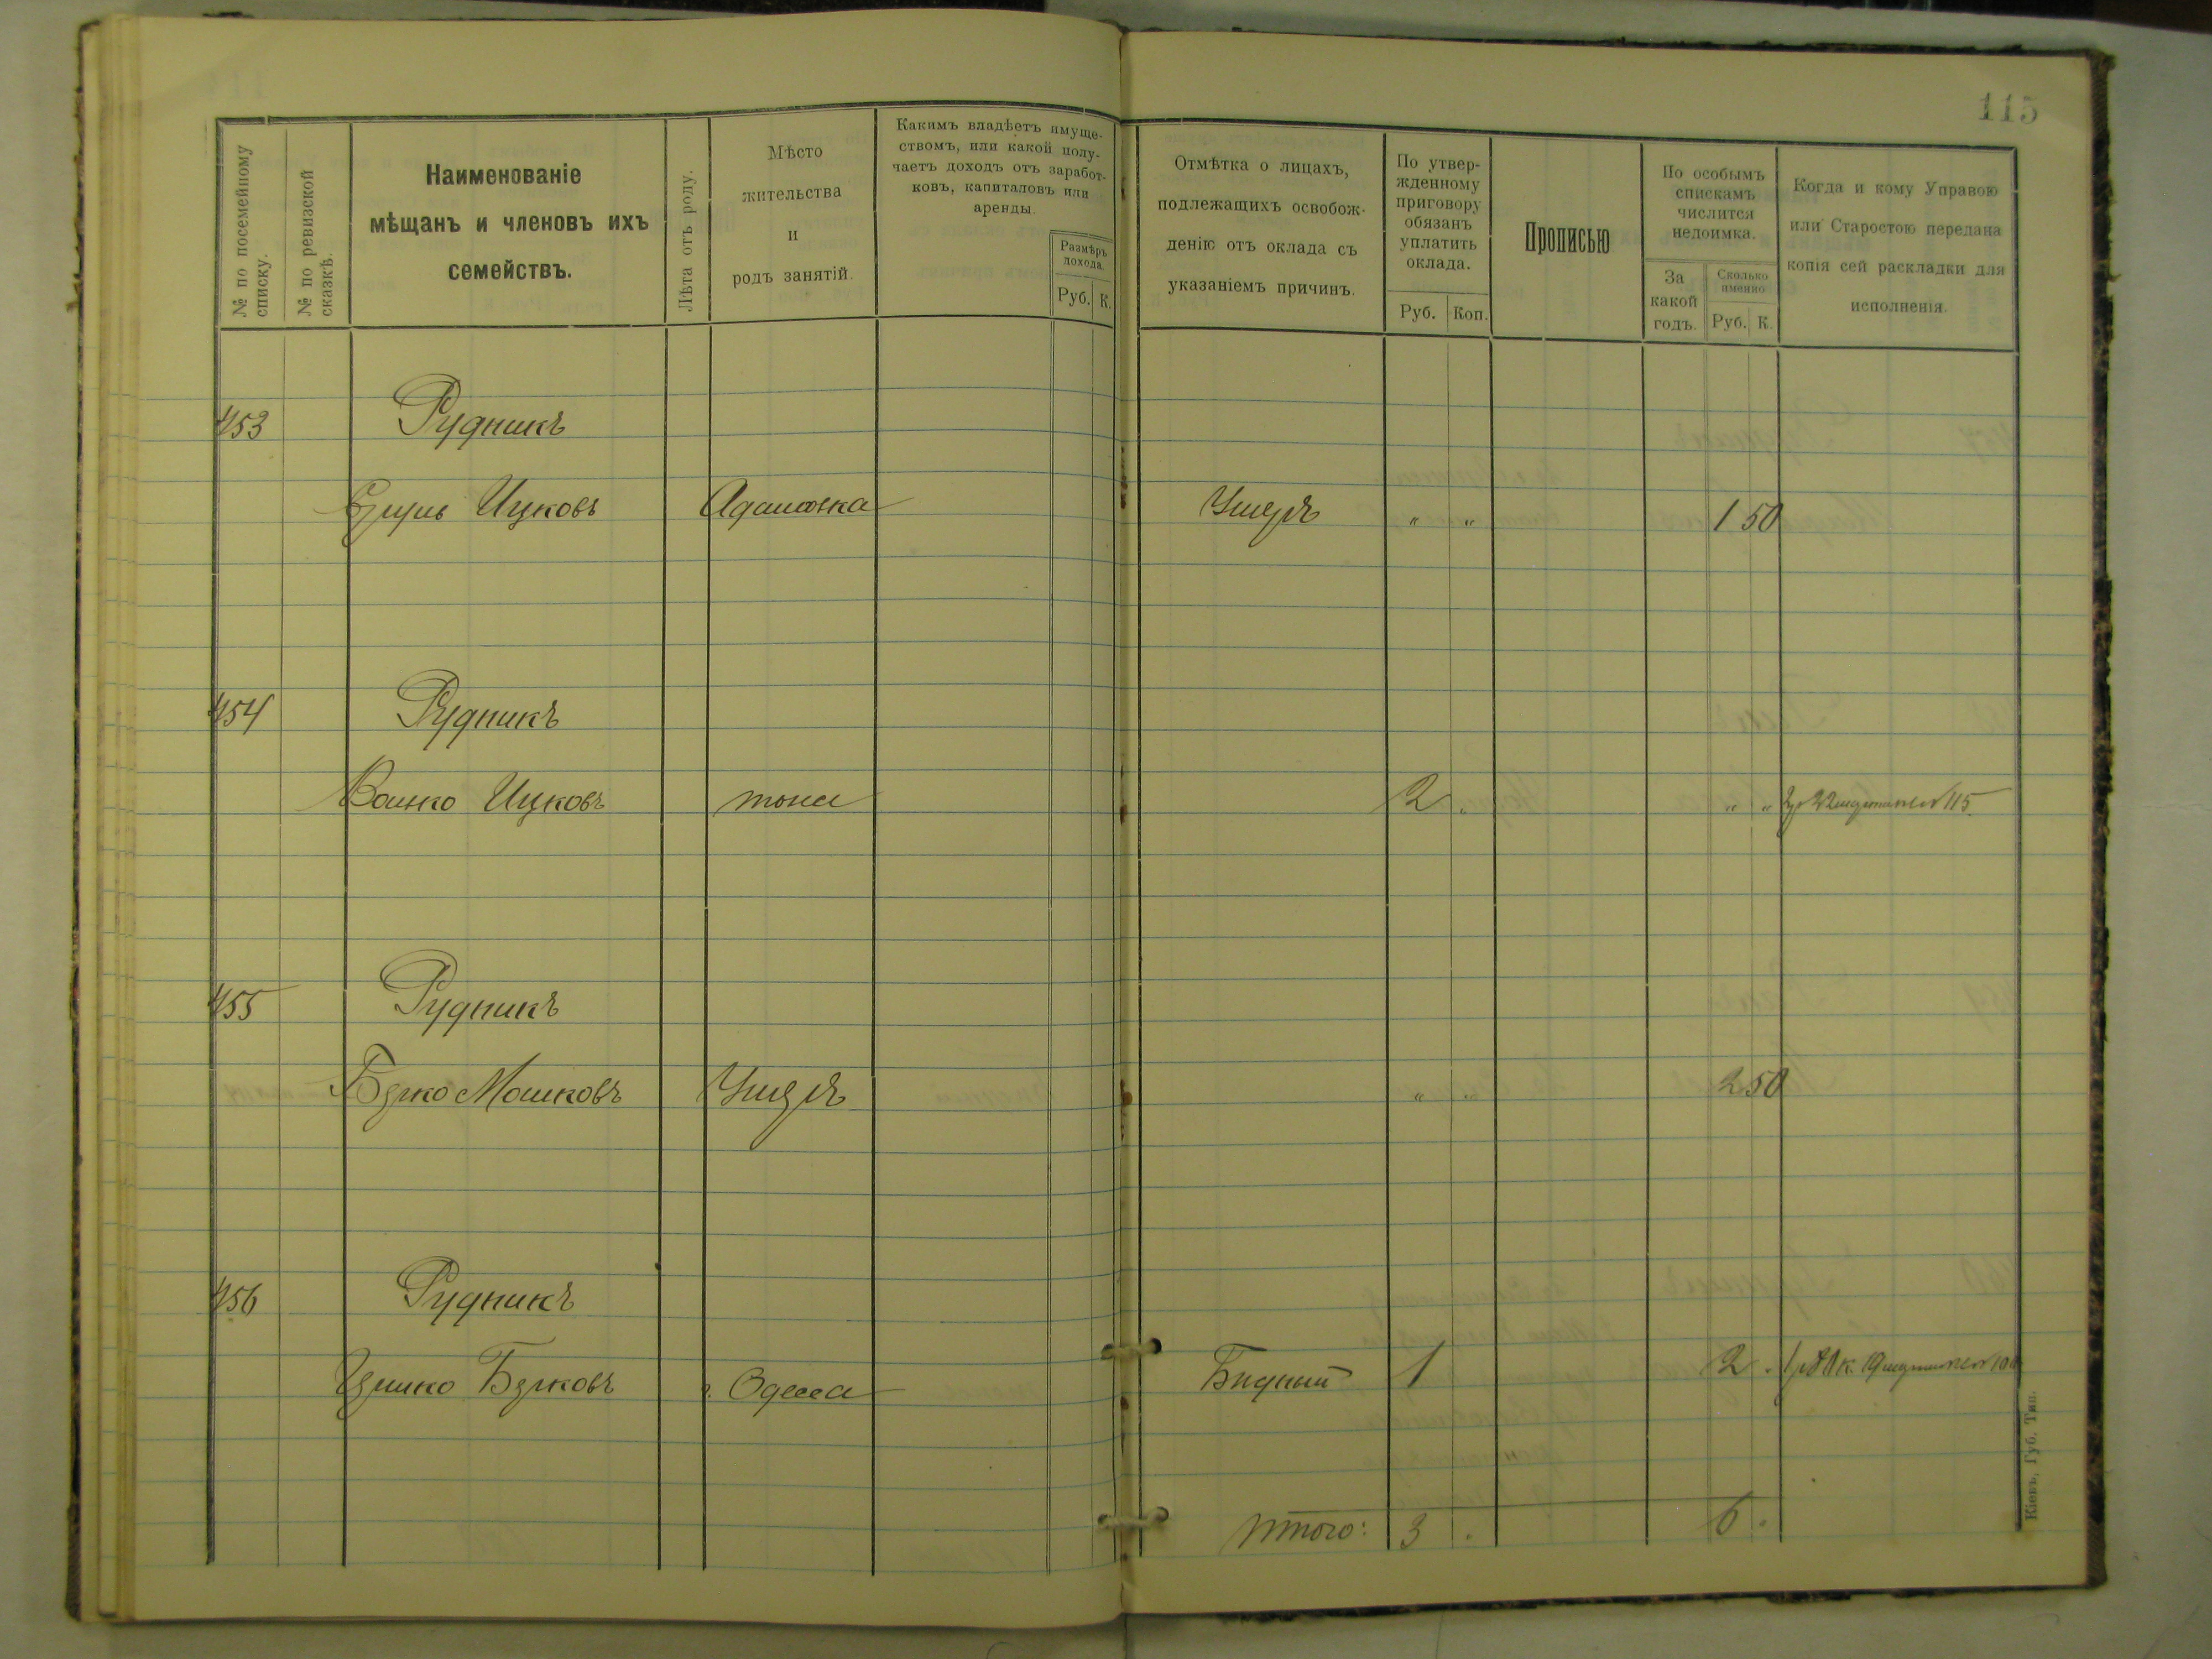 115
№ по посемейному списку.
№ по ревизской сказкѣ.
Наименованіе
мѣщанъ и членовъ ихъ
семействъ.
Лѣта отъ роду.
Мѣсто
жительства
и
родъ занятій.
Какимъ владѣетъ имуще-
ствомъ, или какой полу-
чаетъ доходъ отъ заработ-
ковъ, капиталовъ или
аренды.
Размѣръ
дохода.
Руб. К.
Отмѣтка о лицахъ,
подлежащихъ освобож-
денію отъ оклада съ
указаніемъ причинъ.
По утвер-
жденному
приговору
обязанъ
уплатить
оклада.
Руб. Коп.
Прописью
По особымъ
спискамъ
числится
недоимка.
За
какой
годъ.
Сколько
именно
Руб. К.
Когда и кому Управою
или Старостою передана
копія сей раскладки для
исполненія.
453 Рудникъ
Ицковъ Адамовка Умеръ " " 1 50
454 Рудникъ
Ицковъ тоже 2 . " " 115
455 Рудникъ
Берко Мошковъ Умеръ " " 2 50
456 Рудникъ
Берковъ г. Одесса Бѣдный 1 2 .
Итого: 3 . 6 .
Кіевъ, Губ. Тип.